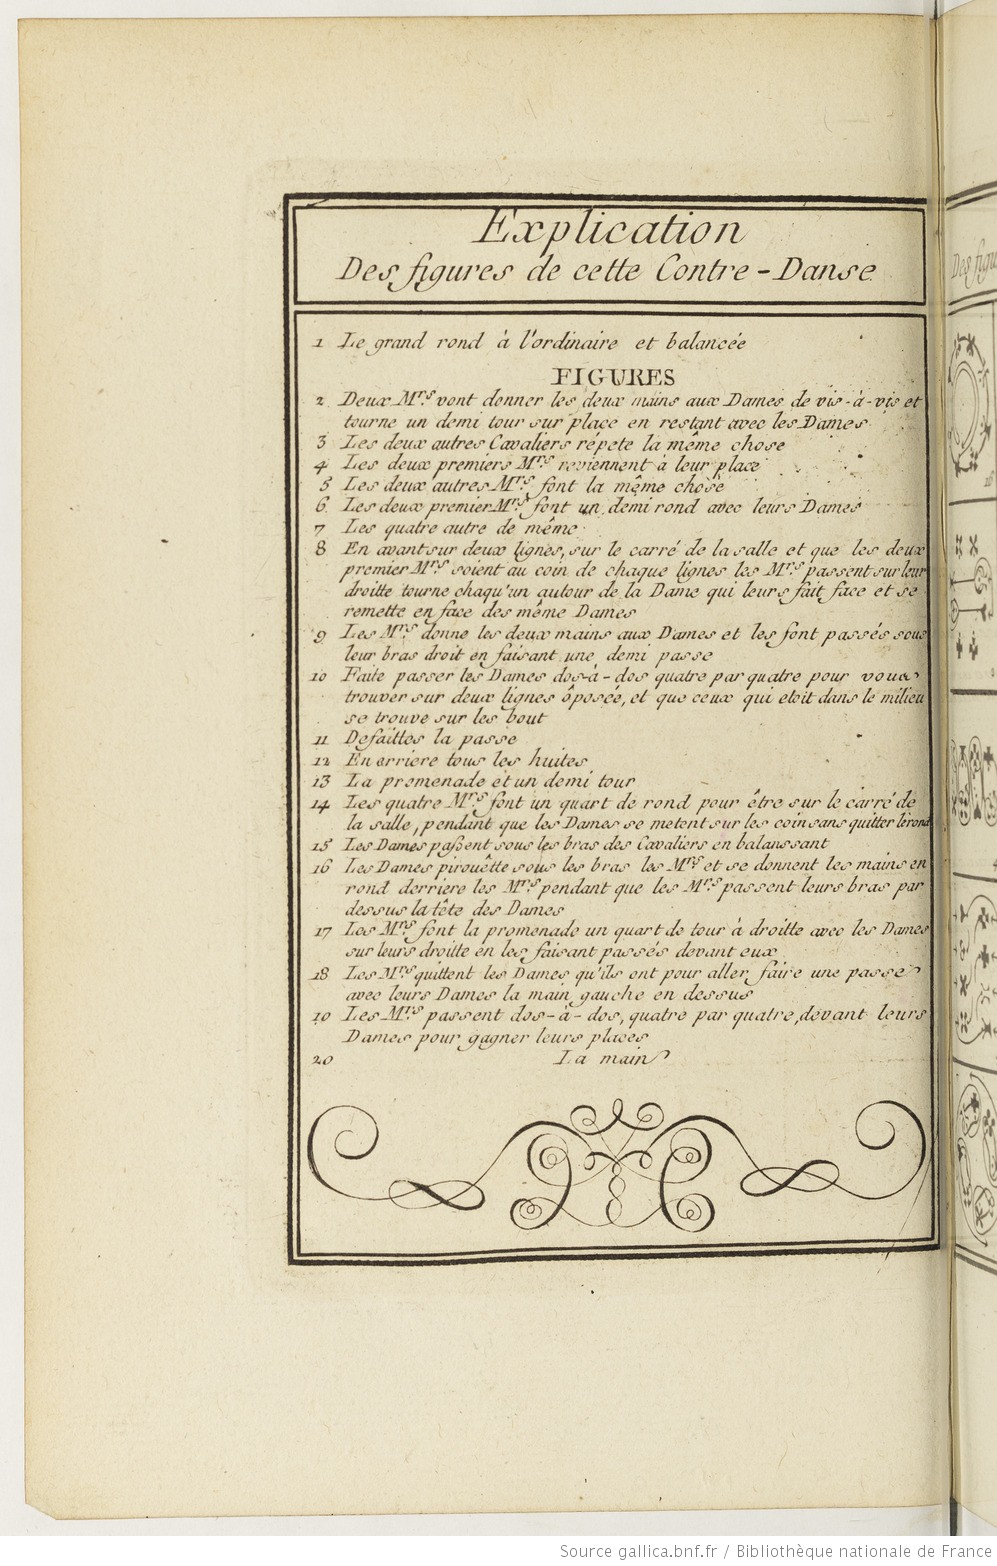 Explication
Des figures de cette Contre-Danse
1 Le grand rond à l'ordinaire et balancée
FIGURES
2 Deux Mrs vont donner les deux mains aux Dames de vis-à-vis et
tourne un demi tour sur place en restant avec les Dames
3 Les deux autres Cavaliers répete la même chose
4 Les deux premiers Mrs reviennent à leur place
5 Les deux autres Mrs font la même chose
6 Les deux premier Mrs font un demi rond avec leurs Dames
7 Les quatre autre de même
8 En avant sur deux lignes, sur le carré de la salle et que les deux
premier Mrs soient au coin de chaque lignes les Mrs passent sur leur
droitte tourne chaqu'un autour de la Dame qui leurs fait face et se
remette en face des même Dames
9 Les Mrs donne les deux mains aux Dames et les font passés sous
leur bras droit en faisant une demi passe
10 Faite passer les Dames dos-à-dos quatre par quatre pour vous
trouver sur deux lignes ôposée, et que ceux qui etoit dans le milieu
se trouve sur les bout
11 Defaittes la passe
12 En arriere tous les huites
13 La promenade et un demi tour
14 Les quatre Mrs font un quart de rond pour être sur le carré de
la salle, pendant que les Dames se metent sur les coin sans quitter le rond
15 Les Dames passent sous les bras des Cavaliers en balanssant
16 Les Dames pirouêtte sous les bras les Mrs et se donnent les mains en
rond derriere les Mrs pendant que les Mrs passent leurs bras par
dessus la tête des Dames
17 Les Mrs font la promenade un quart de tour à droitte avec les Dames
sur leurs droitte en les faisant passés devant eux
18 Les Mrs quittent les Dames qu'ils ont pour aller faire une passe
avec leurs Dames la main gauche en dessus
19 Les Mrs passent dos-à-dos, quatre par quatre, devant leurs
Dames pour gagner leurs places
20 La main
Des figu
Source gallica.bnf.fr / Bibliothèque nationale de France